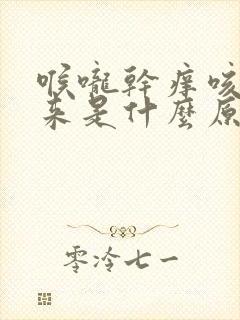 喉嚨幹癢咳
來是什麼原
零泠七一